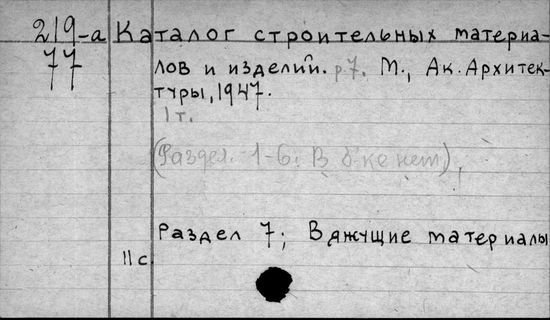 219-а Каталог строительных материа-
77
лов и изделий. р7. М., Ак. Архитек-
туры, 1947.
1 т.
(Раздел. 1-6: В б-ке нет),
Раздел 7; Вяжущие материалы
11 с.